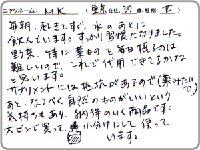 ニックネーム: MK (東京在住 女)
毎朝、起きてすぐ、水のあとに
飲んでいます。すっかり習慣になりました。
野菜、特に葉ものを毎日摂るのは
難しいので、これで代用できてるかな
と思います。
サプリメントには抵抗があるので(薬みたいで)
あと、なるべく自然のものがいいという
気持ちもあり、納得のいく商品です。
大ビンで買って、小分けにして使って
います。